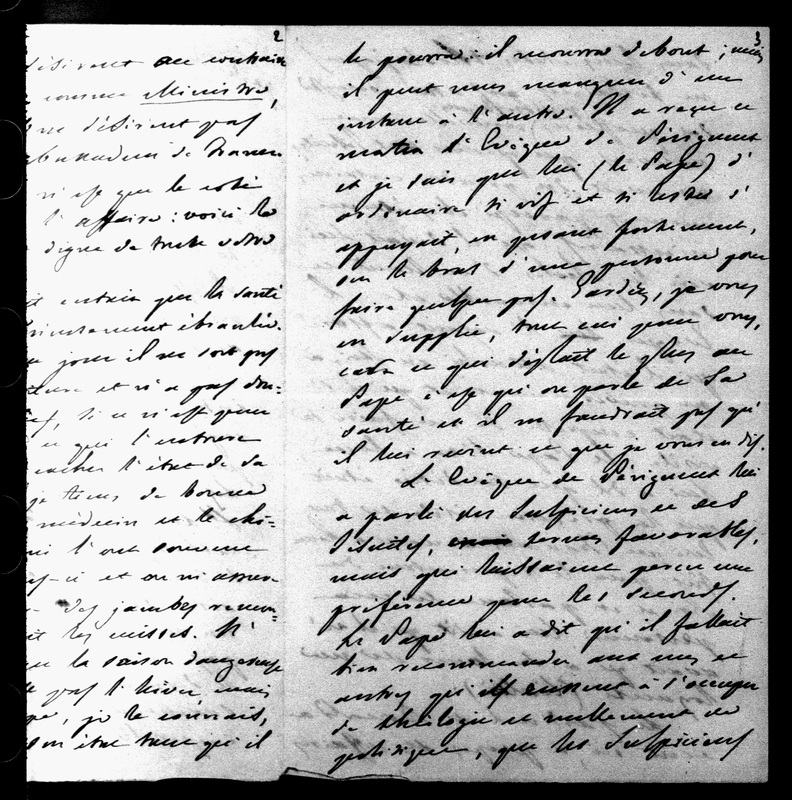 2
désirent au contraire
comme Ministre,
ne désirent pas
de France
n'est que le côté
l'affaire : voici le
digne de toute votre
certain que la santé
ébranlée.
jour il ne sort pas
et n'a pas
si ce n'est pour
ce qui l'entoure
cacher l'état de sa
je tiens de bonne
médecin et le chi=
qui l'ont
et on m'assure
des jambes
les cuisses. N'
que la saison dangereuse
pas l'hiver, mais
je le connais,
son état tant qu'il
3
le pourra : il mourra debout ; mais
il peut nous manquer d'un
instant à l'autre. Il a reçu ce
matin l'Evêque de Périgueux
et je sais que lui (le Pape) d'
ordinaire si vif et si leste s'
appuyait, en pesant fortement,
sur le bras d'une personne pour
faire quelques pas. Gardez, je vous
en supplie, tout ceci pour vous,
car ce qui déplaît le plus au
Pape c'est qu'on parle de sa
santé et il ne faudrait pas qu'
il lui revint ce que je vous en dis.
L'Evêque de Périgueux lui
a parlé des Sulpiciens et des
Jésuites, termes favorables,
mais qui laissaient percer une
préférence pour les seconds.
Le Pape lui a dit qu'il fallait
bien recommander aux uns et
autres qu'ils eussent à s'occuper
de théologie et nullement de
politique, que les Sulpiciens